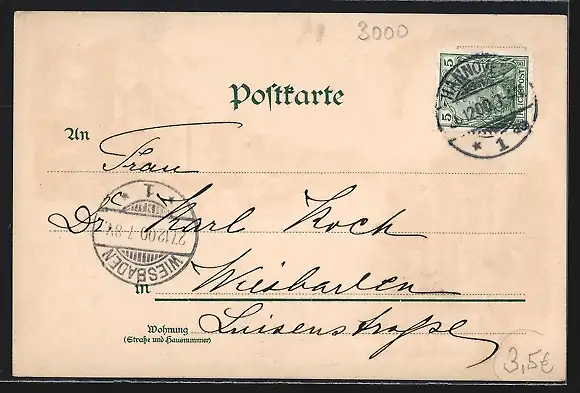 3000
5 5
REICHSPOST
HANNOVER
1200
* 1
Postkarte
An
Frau
Dr. Karl Koch
* 1 *
27.12.00.7-8V.
WIESBADEN
in Wiesbaden
Wohnung
(Straße und Hausnummer)
Luisenstraße
3,5€